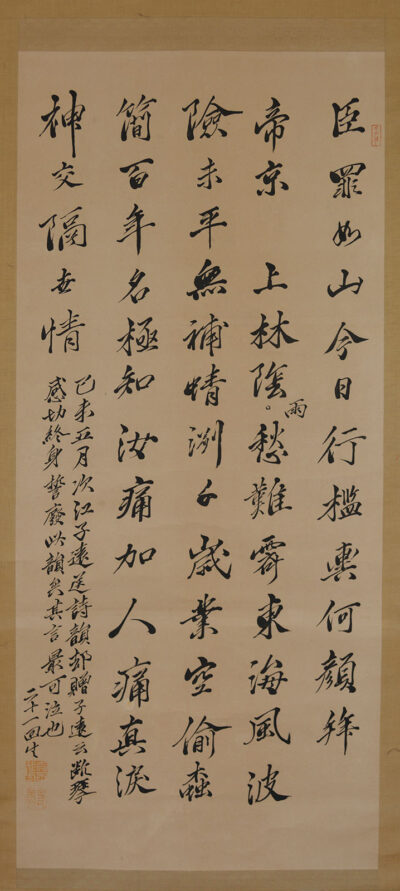 臣罪如山今日行檻輿何顔拜
帝京　上林陰。愁難霽東海風波
雨
險未平無補情測千歲業空偷蠹
簡百年名極知汝痛加人痛真淚
神交隔世情
己未五月次江子遠送詩韻却贈子遠云斷琴
感切終身誓廢以韻矣其言最可泣也
二十一回生